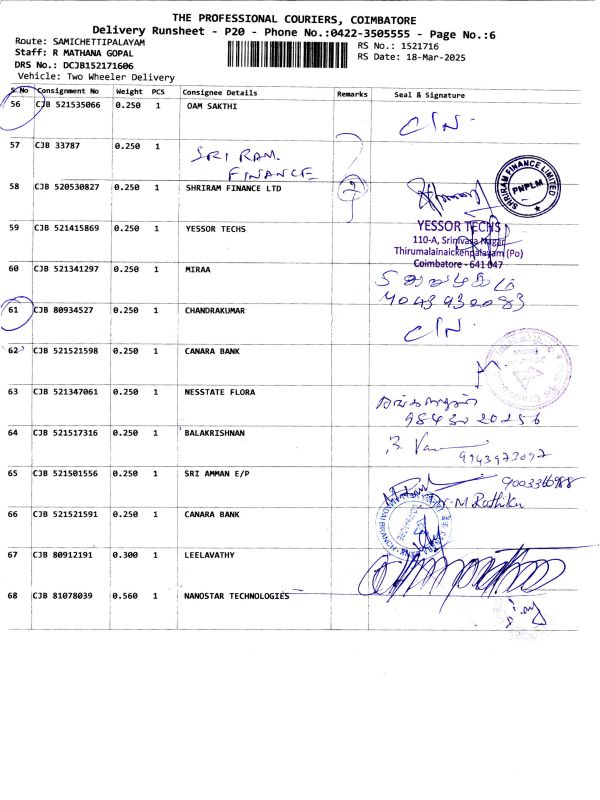 THE PROFESSIONAL COURIERS, COIMBATORE
Delivery Runsheet - P20 - Phone No.:0422-3505555 - Page No.:6
Route: SAMICHETTIPALAYAM
RS No.: 1521716
Staff: R MATHANA GOPAL
RS Date: 18-Mar-2025
DRS No.: DCJB152171606
Vehicle: Two Wheeler Delivery
S.No Consignment No Weight PCS Consignee Details Remarks Seal & Signature
56 CJB 521535066 0.250 1 OAM SAKTHI C/N.
57 CJB 33787 0.250 1 SRI RAM.
FINANCE
58 CJB 520530827 0.250 1 SHRIRAM FINANCE LTD 2 SHRIRAM FINANCE LIMITED PNPLM
59 CJB 521415869 0.250 1 YESSOR TECHS YESSOR TECHS
110-A, Srinivasa Nagar
Thirumalainaickenpalayam (Po)
Coimbatore - 641 047
60 CJB 521341297 0.250 1 MIRAA
61 CJB 80934527 0.250 1 CHANDRAKUMAR C/N.
62 CJB 521521598 0.250 1 CANARA BANK
63 CJB 521347061 0.250 1 NESSTATE FLORA
64 CJB 521517316 0.250 1 BALAKRISHNAN
65 CJB 521501556 0.250 1 SRI AMMAN E/P
66 CJB 521521591 0.250 1 CANARA BANK
67 CJB 80912191 0.300 1 LEELAVATHY
68 CJB 81078039 0.560 1 NANOSTAR TECHNOLOGIES